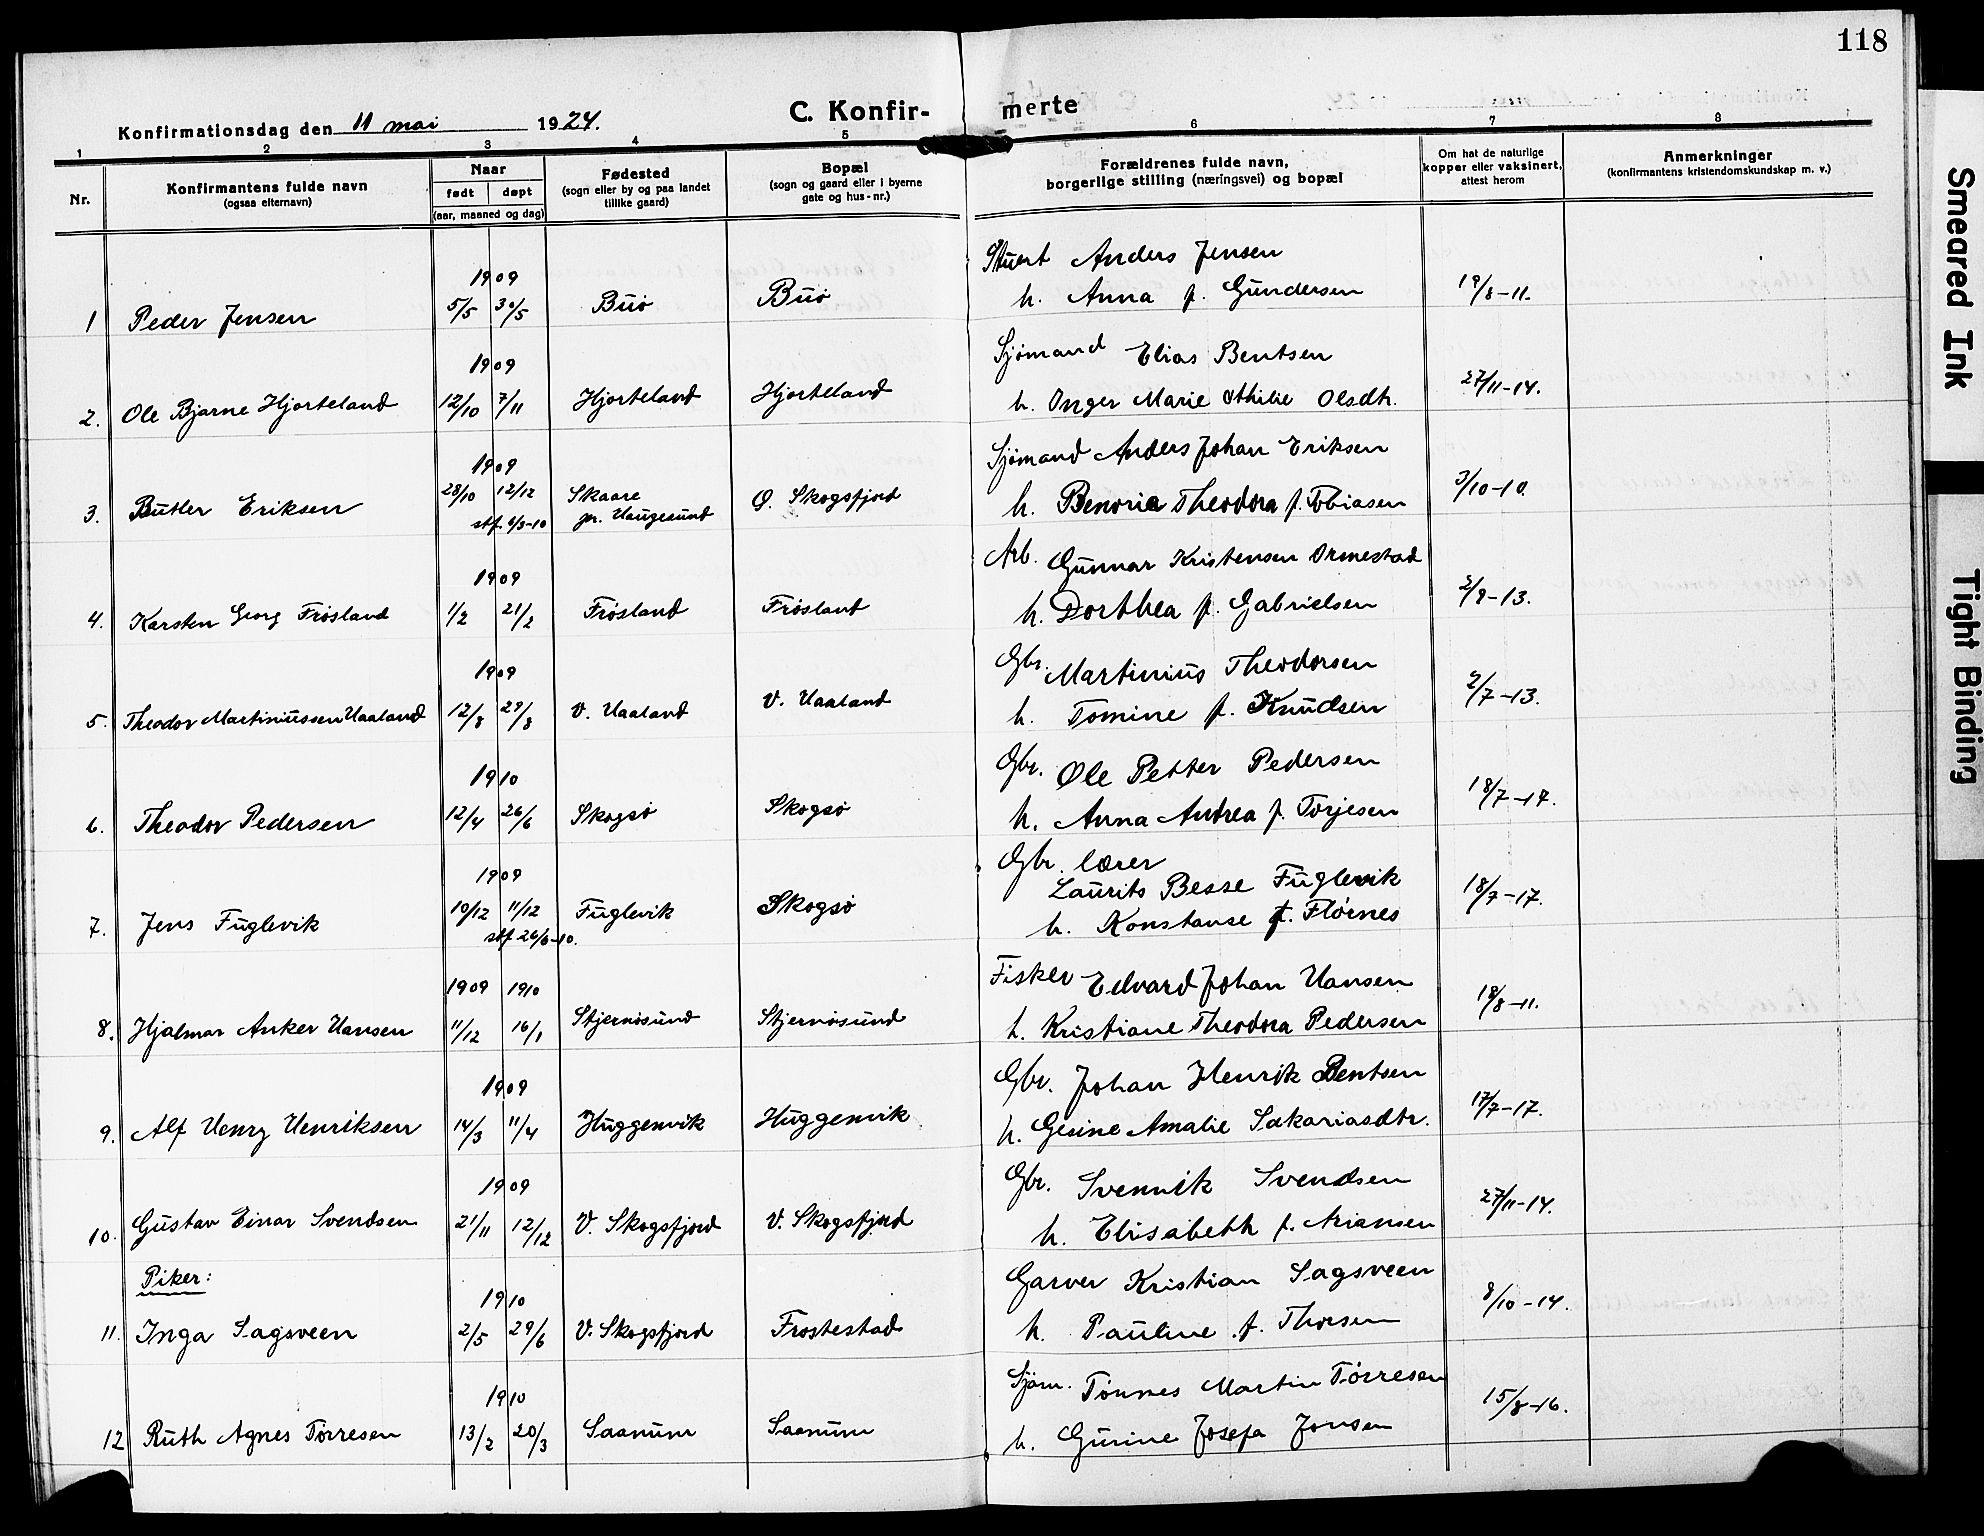 118
C. Konfir- merte
Konfirmationsdag den 11 mai 1924.
1 2 3 4 5 6 7 8
Nr.
Konfirmantens fulde navn
(ogsaa efternavn)
Naar
født døpt
(aar, maaned og dag)
Fødested
(sogn eller by og paa landet
tillike gaard)
Bopæl
(sogn og gaard eller i byerne
gate og hus-nr.)
Forældrenes fulde navn,
borgerlige stilling (næringsvei) og bopæl
Om hat de naturlige
kopper eller vaksinert,
attest herom
Anmerkninger
(konfirmantens kristendomskundskap m. v.)
1909 Stuert Anders Jensen
1 Peder Jensen 5/5 30/5 Buø Buø h. Anna f. Gundersen 19/8-11.
1909 Sjømand Elias Bentsen
2. Ole Bjarne Hjorteland 12/10 7/11 Hjorteland Hjorteland h. Inger Marie Othilie Olsdtr. 27/11-14.
1909 Sjømand Anders Johan Eriksen
3. Butler Eriksen 28/10 12/12 Skaare O. Skogsfjord h. Benoria Theodora f. Tobiasen 3/10-10.
stf. 6/3-10 pr. Haugesund
1909 Arb. Gunnar Kristensen Ormestad
4. Karsten Georg Frøsland 1/2 21/2 Frøsland Frøsland h. Dorthea f. Gabrielsen 2/8-13.
1909 Gbr. Martinius Theodorsen
5. Theodor Martiniussen Haaland 12/8 29/8 V. Haaland V. Haaland h. Tomine f. Knudsen 2/7-13.
1910 Gbr. Ole Petter Pedersen
6. Theodor Pedersen 12/4 26/6 Skogsø Skogsø h. Anna Andrea f. Torjesen 18/7-17.
1909 Gbr. lærer
Laurits Besse Fuglevik
7. Jens Fuglevik 10/12 11/12 Fuglevik Skogsø h. Konstanse f. Flørnes 18/7-17.
stf 26/6-10.
1909 1910 Fisker Edvard Johan Hansen
8. Hjalmar Anker Hansen 11/12 16/1 Stjernøsund Stjernøsund h. Kristiane Theodora Pedersen 18/8-11.
1909 Gbr. Johan Henrik Bentsen
9. Alf Henry Henriksen 14/3 11/4 Huggenvik Huggenvik h. Gesine Amalie Sakariasdtr. 17/7-17.
1909 Gbr. Svennik Svendsen
10. Gustav Einar Svendsen 21/11 12/12 V. Skogsfjord V. Skogsfjord h. Elisabeth f. Ariansen 27/11-14.
Piker:
1910 Garver Kristian Sagsveen
11. Inga Sagsveen 2/5 29/6 V. Skogsfjord Frostestad h. Pauline f. Thorsen 8/10-14.
1910 Sjøm. Tønnes Martin Tørresen
12 Ruth Agnes Tørresen 13/2 20/3 Saanum Saanum h. Gurine Josefa Jonsen 15/8-16.
Smeared Ink
Tight Binding